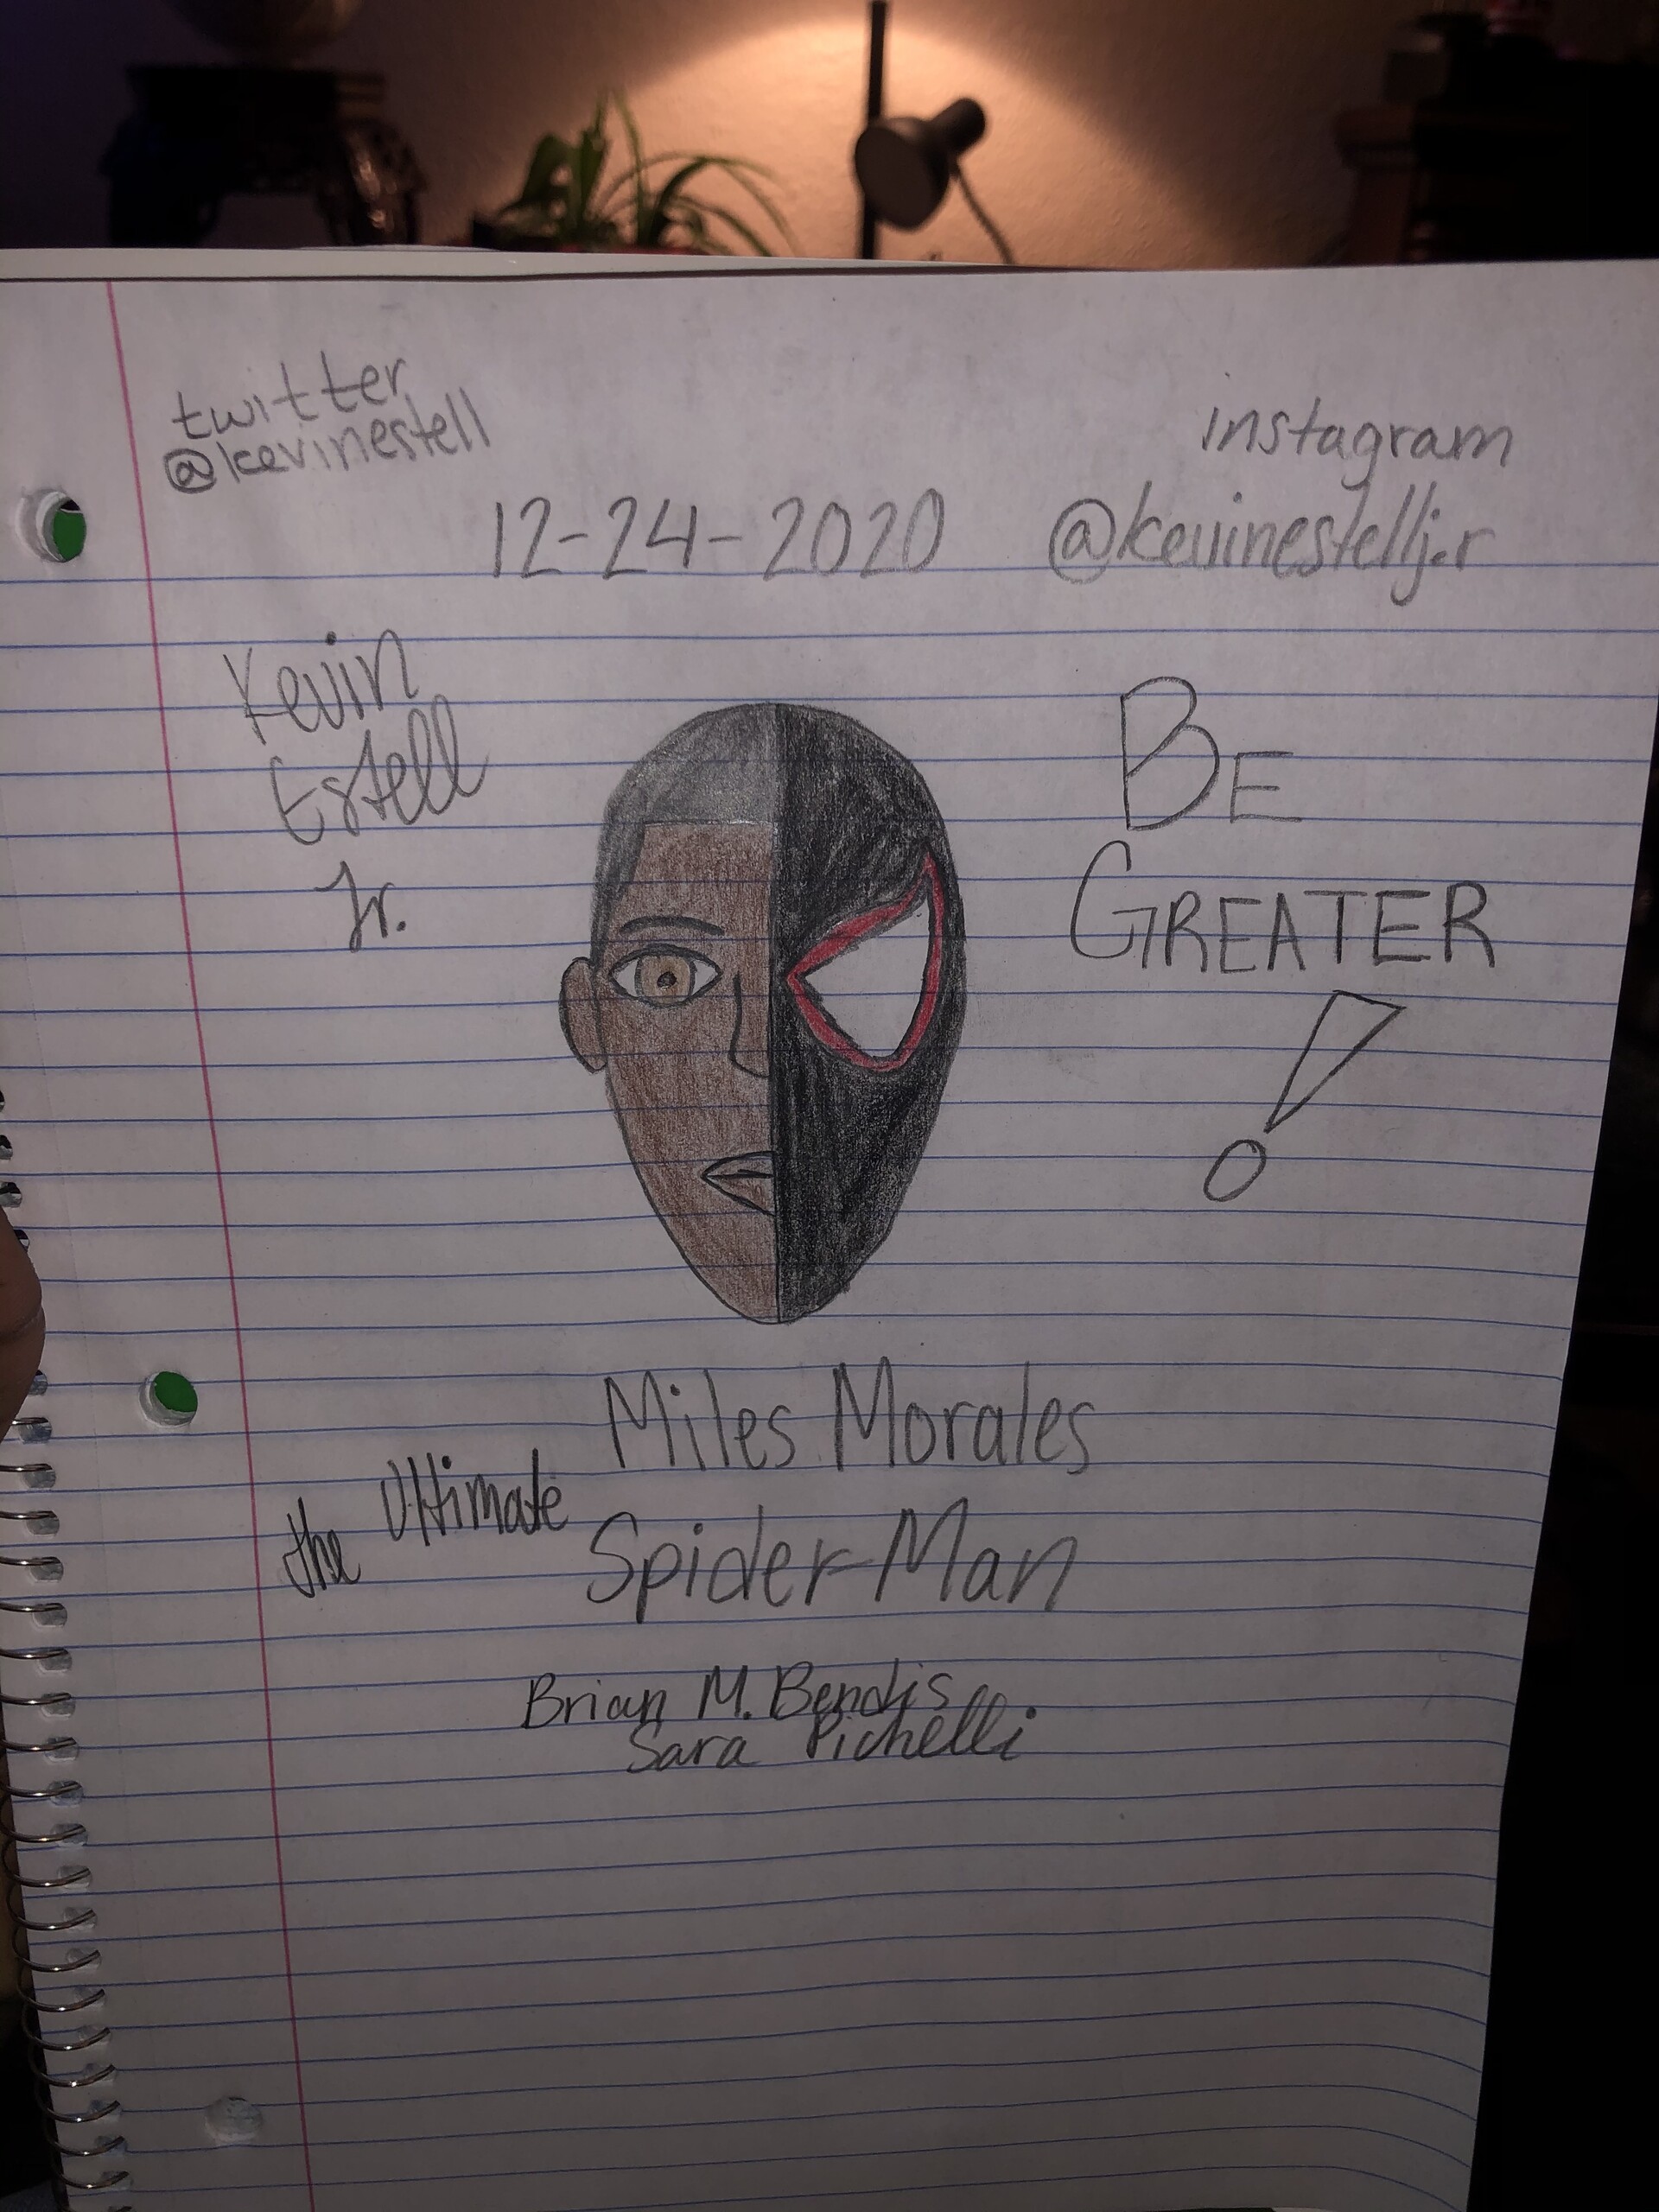 twitter
@kevinestell
instagram
@kevinestellj.r
12-24-2020
Kevin
Estell
Jr.
BE
GREATER
!
Miles Morales
the Ultimate
Spider-Man
Brian M. Bendis
Sara Pichelli